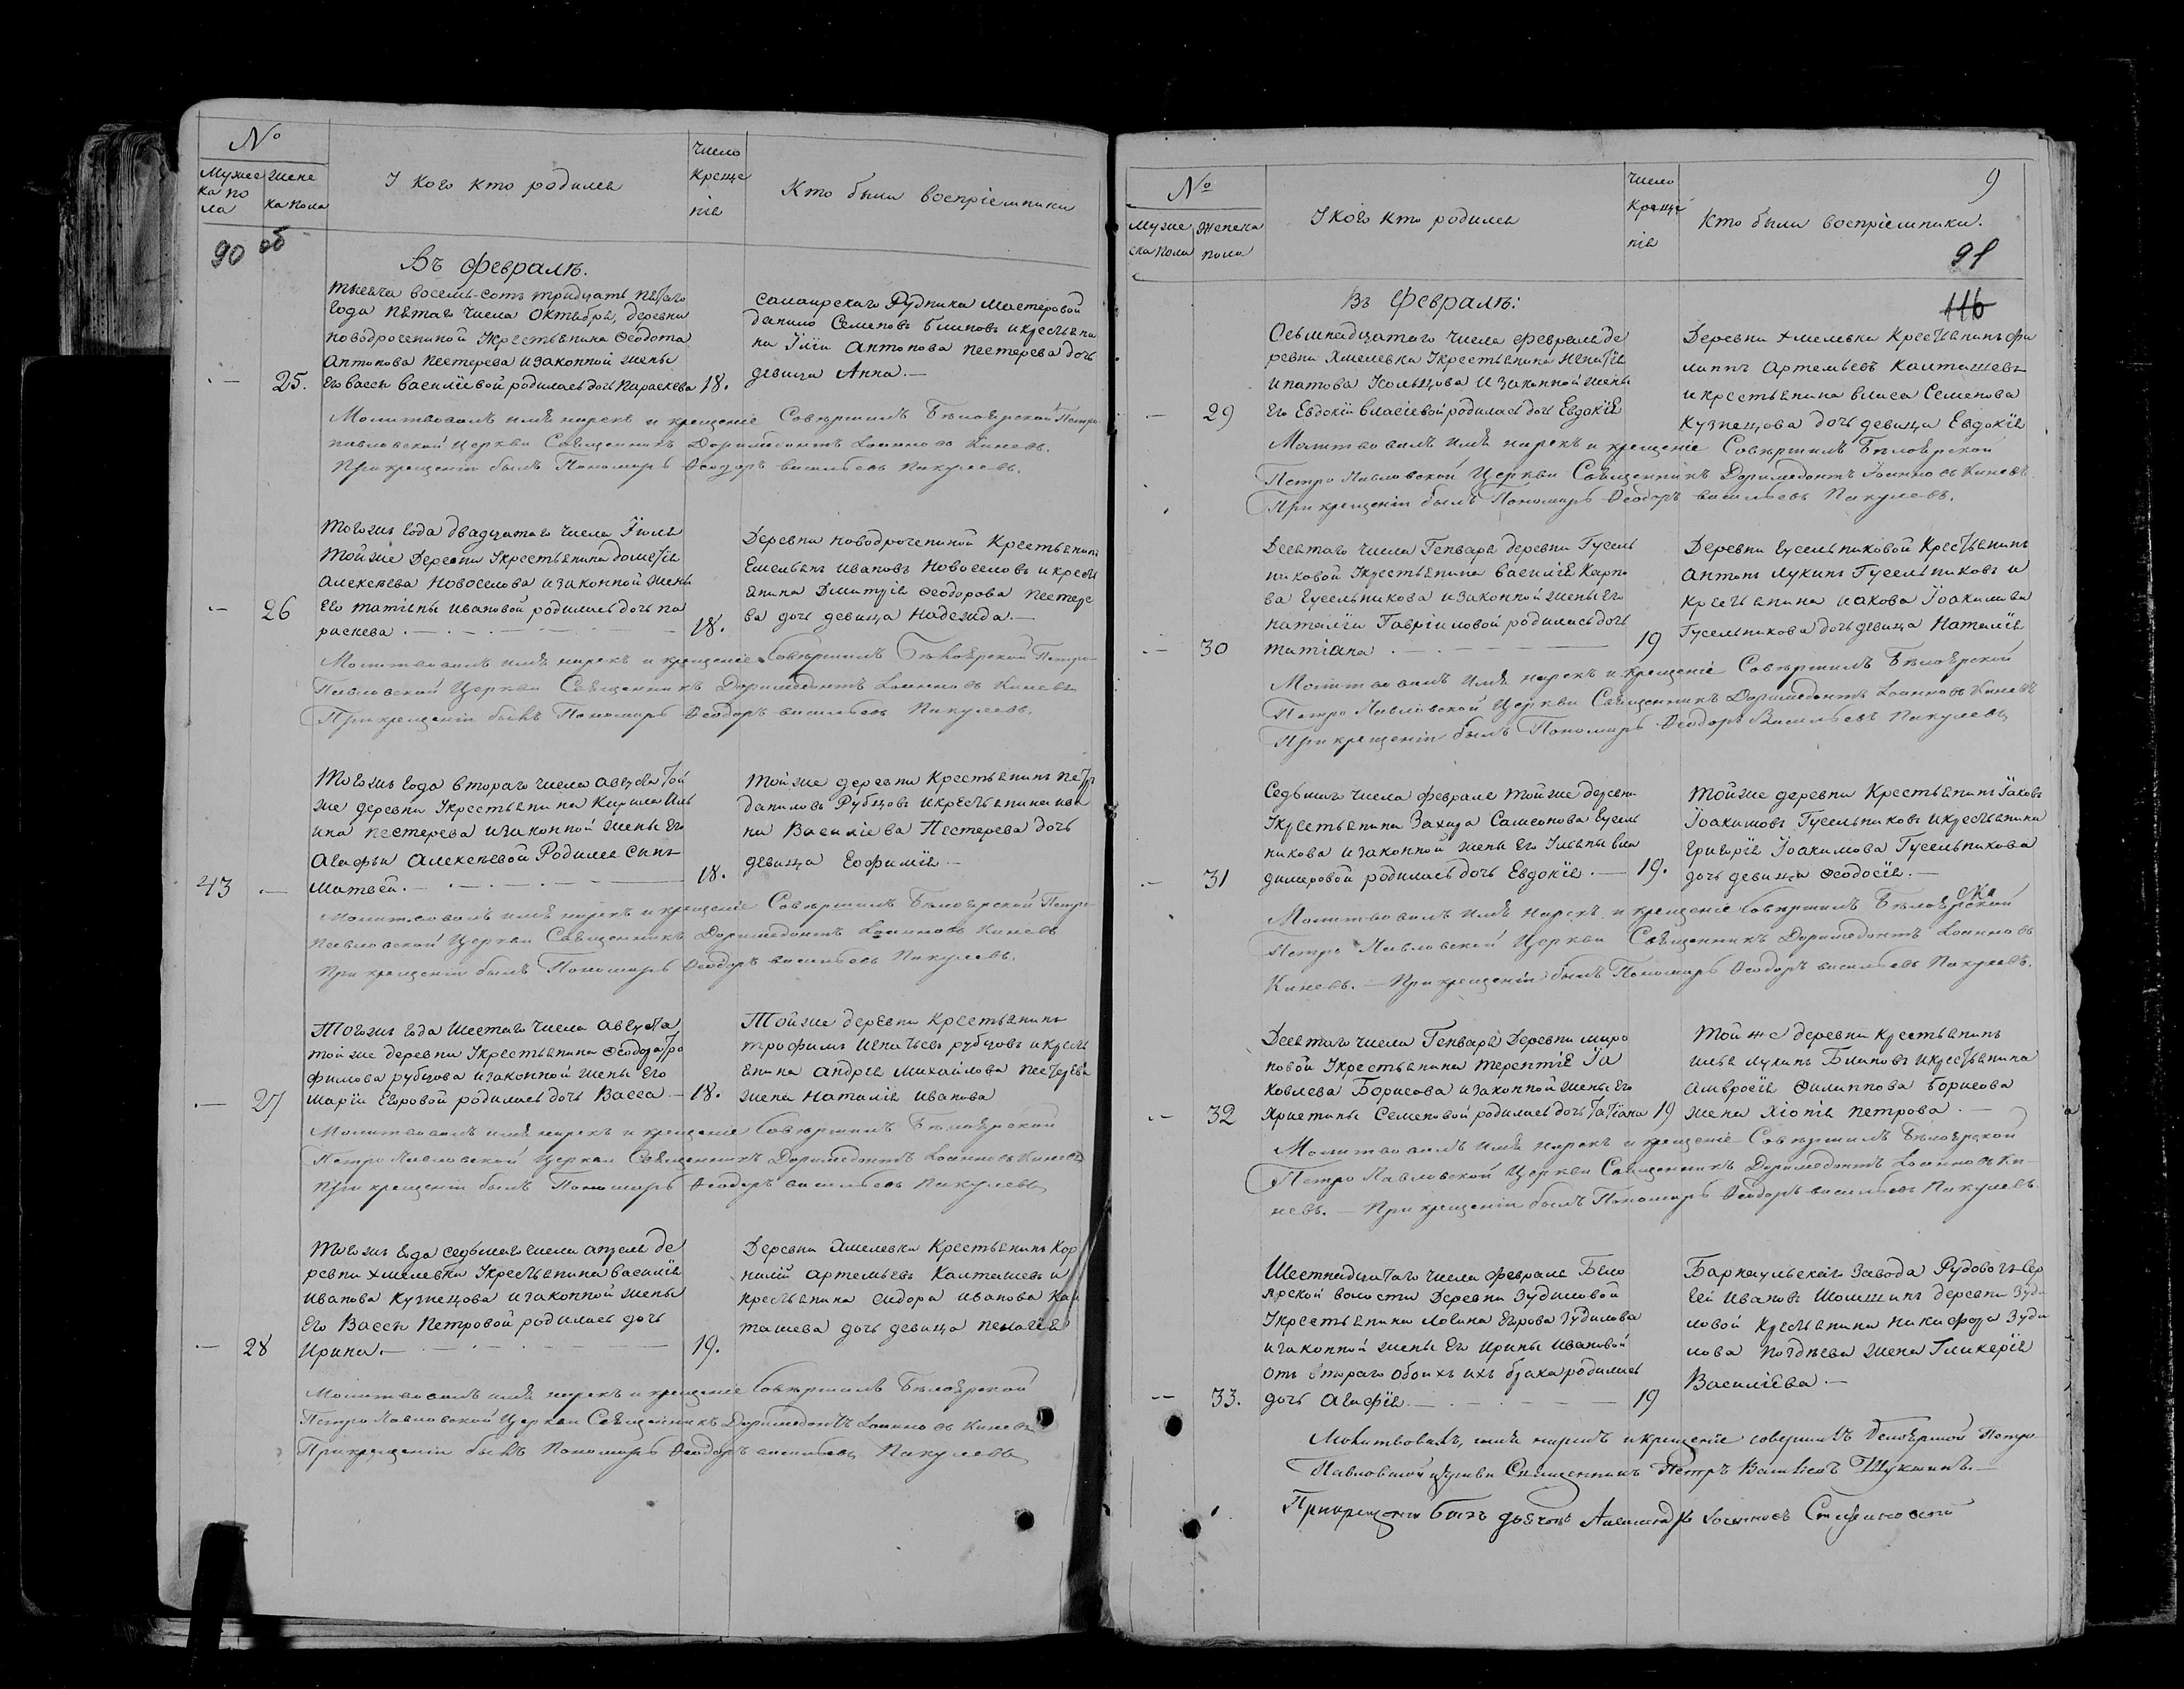 №
Мужес
ка по
ла
Женс
ка пола
У Кого кто родился
Число
Креще
нія
Кто были воспріемники
90 об
Въ Февралѣ.
тысяча восемь-сотъ тридцать пятаго
года пятаго числа Октября, деревни
новодрачениной Укрестьянина Ѳеодота
Антонова Пестерева изаконной жены
25. его вассы василіевой родилась дочь Параскева 18.
Салаирскаго Рудника Мастеровой
данило Семеновъ блиновъ икрестьяни
на Іліи Антонова Пестерева дочь
девица Анна.
Молитвовалъ имя нарекъ и крещеніе Совѣршилъ Бѣлоярской Петро-
павловской Церкви Священникъ Доримедонтъ Іоанновъ Киневъ.
При крещеніи былъ Пономарь Ѳеодоръ васильевъ Пакулевъ.
Тогожъ года двадцатаго числа Іюля
Тойже Деревни Укрестьянина дометія
Алексеева Новоселова изаконной жены
26 Его татіяны ивановой родилась дочь па
раскева. 18.
Деревни новодраченикой Крестьянинъ
Емельянъ ивановъ Новоселовъ икресть
янина Дмитрія Ѳеодорова Пестере
ва дочь девица Надежда.
Молитвовалъ имя нарекъ и крещеніе Совѣршилъ Бѣлоярской Петро-
Павловской Церкви Священникъ Доримедонтъ Іоанновъ Киневъ
При крещеніи былъ Пономарь Ѳеодоръ васильевъ Пакулевъ.
Тогожъ года втораго числа Августа той
же деревни Укрестьянина Кирила Иль
ина Пестерева изаконной жены Его
Агафьи Алексеевой Родился Сынъ
43 Матвей. 18.
Тойже деревни Крестьянинъ Петръ
даниловъ Рубцовъ икрестьянина ива
на Василіева Пестерева дочь
девица Ефимія
Молитвовалъ имя нарекъ и крещеніе Совѣршилъ Бѣлоярской Петро-
Павловской Церкви Священникъ Доримедонтъ Іоанновъ Киневъ
При крещеніи былъ Пономарь Ѳеодоръ васильевъ Пакулевъ.
Тогожъ года шестаго числа Августа
тойже деревни Укрестьянина Ѳеодора Тро
фимова рубцова изаконной жены Его
27 Маріи Егоровой родилась дочь Васса 18.
Тойже деревни Крестьянинъ
трофимъ Игнатьевъ рубцовъ икресть
янина Андрея Михайлова Пестерева
жена Наталія Иванова
Молитвовалъ имя нарекъ и крещеніе Совѣршилъ Бѣлоярской
Петро Павловской Церкви Священникъ Доримедонтъ Іоанновъ Киневъ
При крещеніи былъ Пономарь Ѳеодоръ васильевъ Пакулевъ
Тогожъ года седьмаго числа апреля де
ревни хмелевки Укрестьянина Василія
Иванова Кузнецова изаконной жены
Его Вассы Петровой родилась дочь
28 Ирина. 19.
Деревни Хмелевки Крестьянинъ Кор
нилій Артемьевъ Калташевъ и
крестьянина Сидора Иванова Кал
ташева дочь девица пелагія
Молитвовалъ имя нарекъ и крещеніе Совѣршилъ Бѣлоярской
Петро Павловской Церкви Священникъ Доримедонтъ Іоанновъ Киневъ
При крещеніи былъ Пономарь Ѳеодоръ васильевъ Пакулевъ
№
Муже
ска Пола
Женска
Пола
У Кого кто родился
Число
Креще
нія
Кто были воспріемники.
9
91
116
Въ Февралѣ:
Осьмнадцатаго числа февраля де
ревни Хмелевки Укрестьянина Игнатія
Ипатова Кольцова изаконной жены
29 Его Евдокіи власіевой родилась дочь Евдокія
Деревни Хмелевки Крестьянинъ Фи
липпъ Артемьевъ Калташевъ
и крестьянина власа Семенова
Кузнецова дочь девица Евдокія
Молитвовалъ имя нарекъ и крещеніе Совѣршилъ Бѣлоярской
Петро Павловской Церкви Священникъ Доримедонтъ Іоанновъ Киневъ
При крещеніи былъ Пономарь Ѳеодоръ васильевъ Пакулевъ.
Десятаго числа Генваря деревни Гусель
никовой Укрестьянина Василія Карпо
ва Гусельникова изаконной жены Его
наталіи Гавріиловой родилась дочь
30 татіана 19
Деревни Гусельниковой Крестьянинъ
Антонъ Лукинъ Гусельниковъ и
крестьянина иакова Іоакимова
Гусельникова дочь девица Наталія
Молитвовалъ имя нарекъ и крещеніе Совѣршилъ Бѣлоярской
Петро Павловской Церкви Священникъ Доримедонтъ Іоанновъ Киневъ
При крещеніи былъ Пономарь Ѳеодоръ Васильевъ Пакулевъ
Седьмаго числа февраля тойже деревни
Укрестьянина Захара Самсонова Гусель
никова изаконной жены Его Ульяны вла
31 димеровой родилась дочь Евдокія. 19.
Тойже деревни Крестьянинъ Іаковъ
Іоакимовъ Гусельниковъ икрестьянина
Григорія Іоакимова Гусельникова
дочь девица Ѳеодосія.
Молитвовалъ имя нарекъ и крещеніе Совѣршилъ Бѣлоярской
Петро Павловской Церкви Священникъ Доримедонтъ Іоанновъ
Киневъ. — При крещеніи былъ Пономарь Ѳеодоръ васильевъ Пакулевъ.
Десятаго числа Генваря Деревни миро
новой Укрестьянина терентія Іа
ковлева Борисова изаконной жены Его
32 Христины Семеновой родилась дочь Татіана 19
Той же деревни Крестьянинъ
илья лукинъ Блиновъ икрестьянина
Амвросія Филиппова Борисова
жена Хіонія Петрова.
Молитвовалъ имя нарекъ и крещеніе Совѣршилъ Бѣлоярской
Петро Павловской Церкви Священникъ Доримедонтъ Іоанновъ Ки-
невъ. — При крещеніи былъ Пономарь Ѳеодоръ васильевъ Пакулевъ.
Шестнадцатаго числа Февраля Бело
ярской волости Деревни Зудиловой
Укрестьянина Логина Егорова Зудилова
изаконной жены Его Ирины Ивановой
отъ втораго обоихъ ихъ брака родилась
33. дочь Агафія. 19
Барнаульскаго Завода Рудовозъ Сер
гѣй Ивановъ деревни Зуди
ловой крестьянина никифора Зуди
лова жена Гликерія
Василіева
Молитвовалъ, имя нарекъ и крещеніе совершилъ Белоярской Петро-
Павловской церкви Священникъ Петръ Шукшинъ.
При крещеніи былъ дьячокъ Александръ